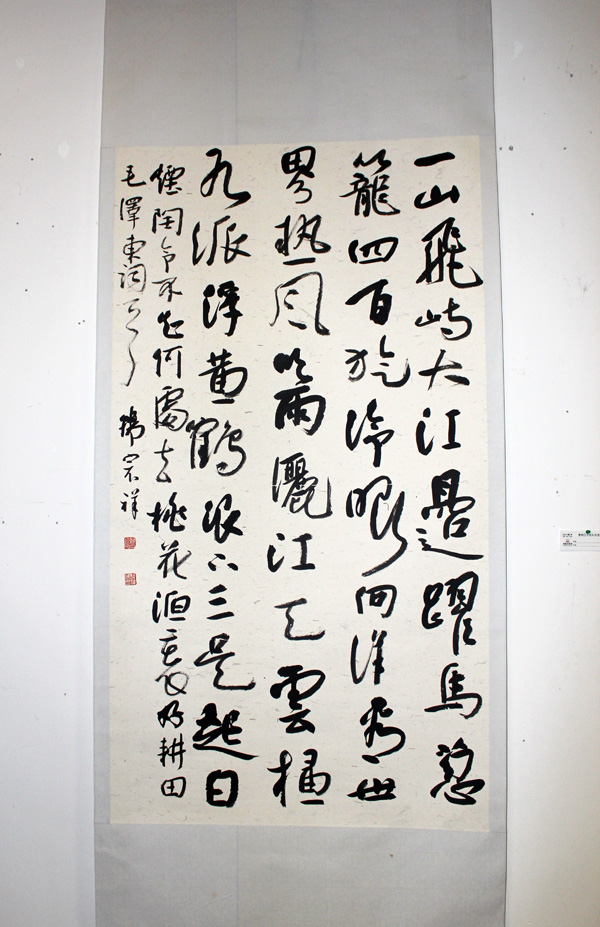 一山飛峙大江邊躍馬蔥
蘢四百旋冷眼向洋看世
界熱風吹雨灑江天雲橫
九派浮黃鶴浪下三吳起白
煙陶令不知何處去桃花源裏可耕田
毛澤東詞 楊宗祥